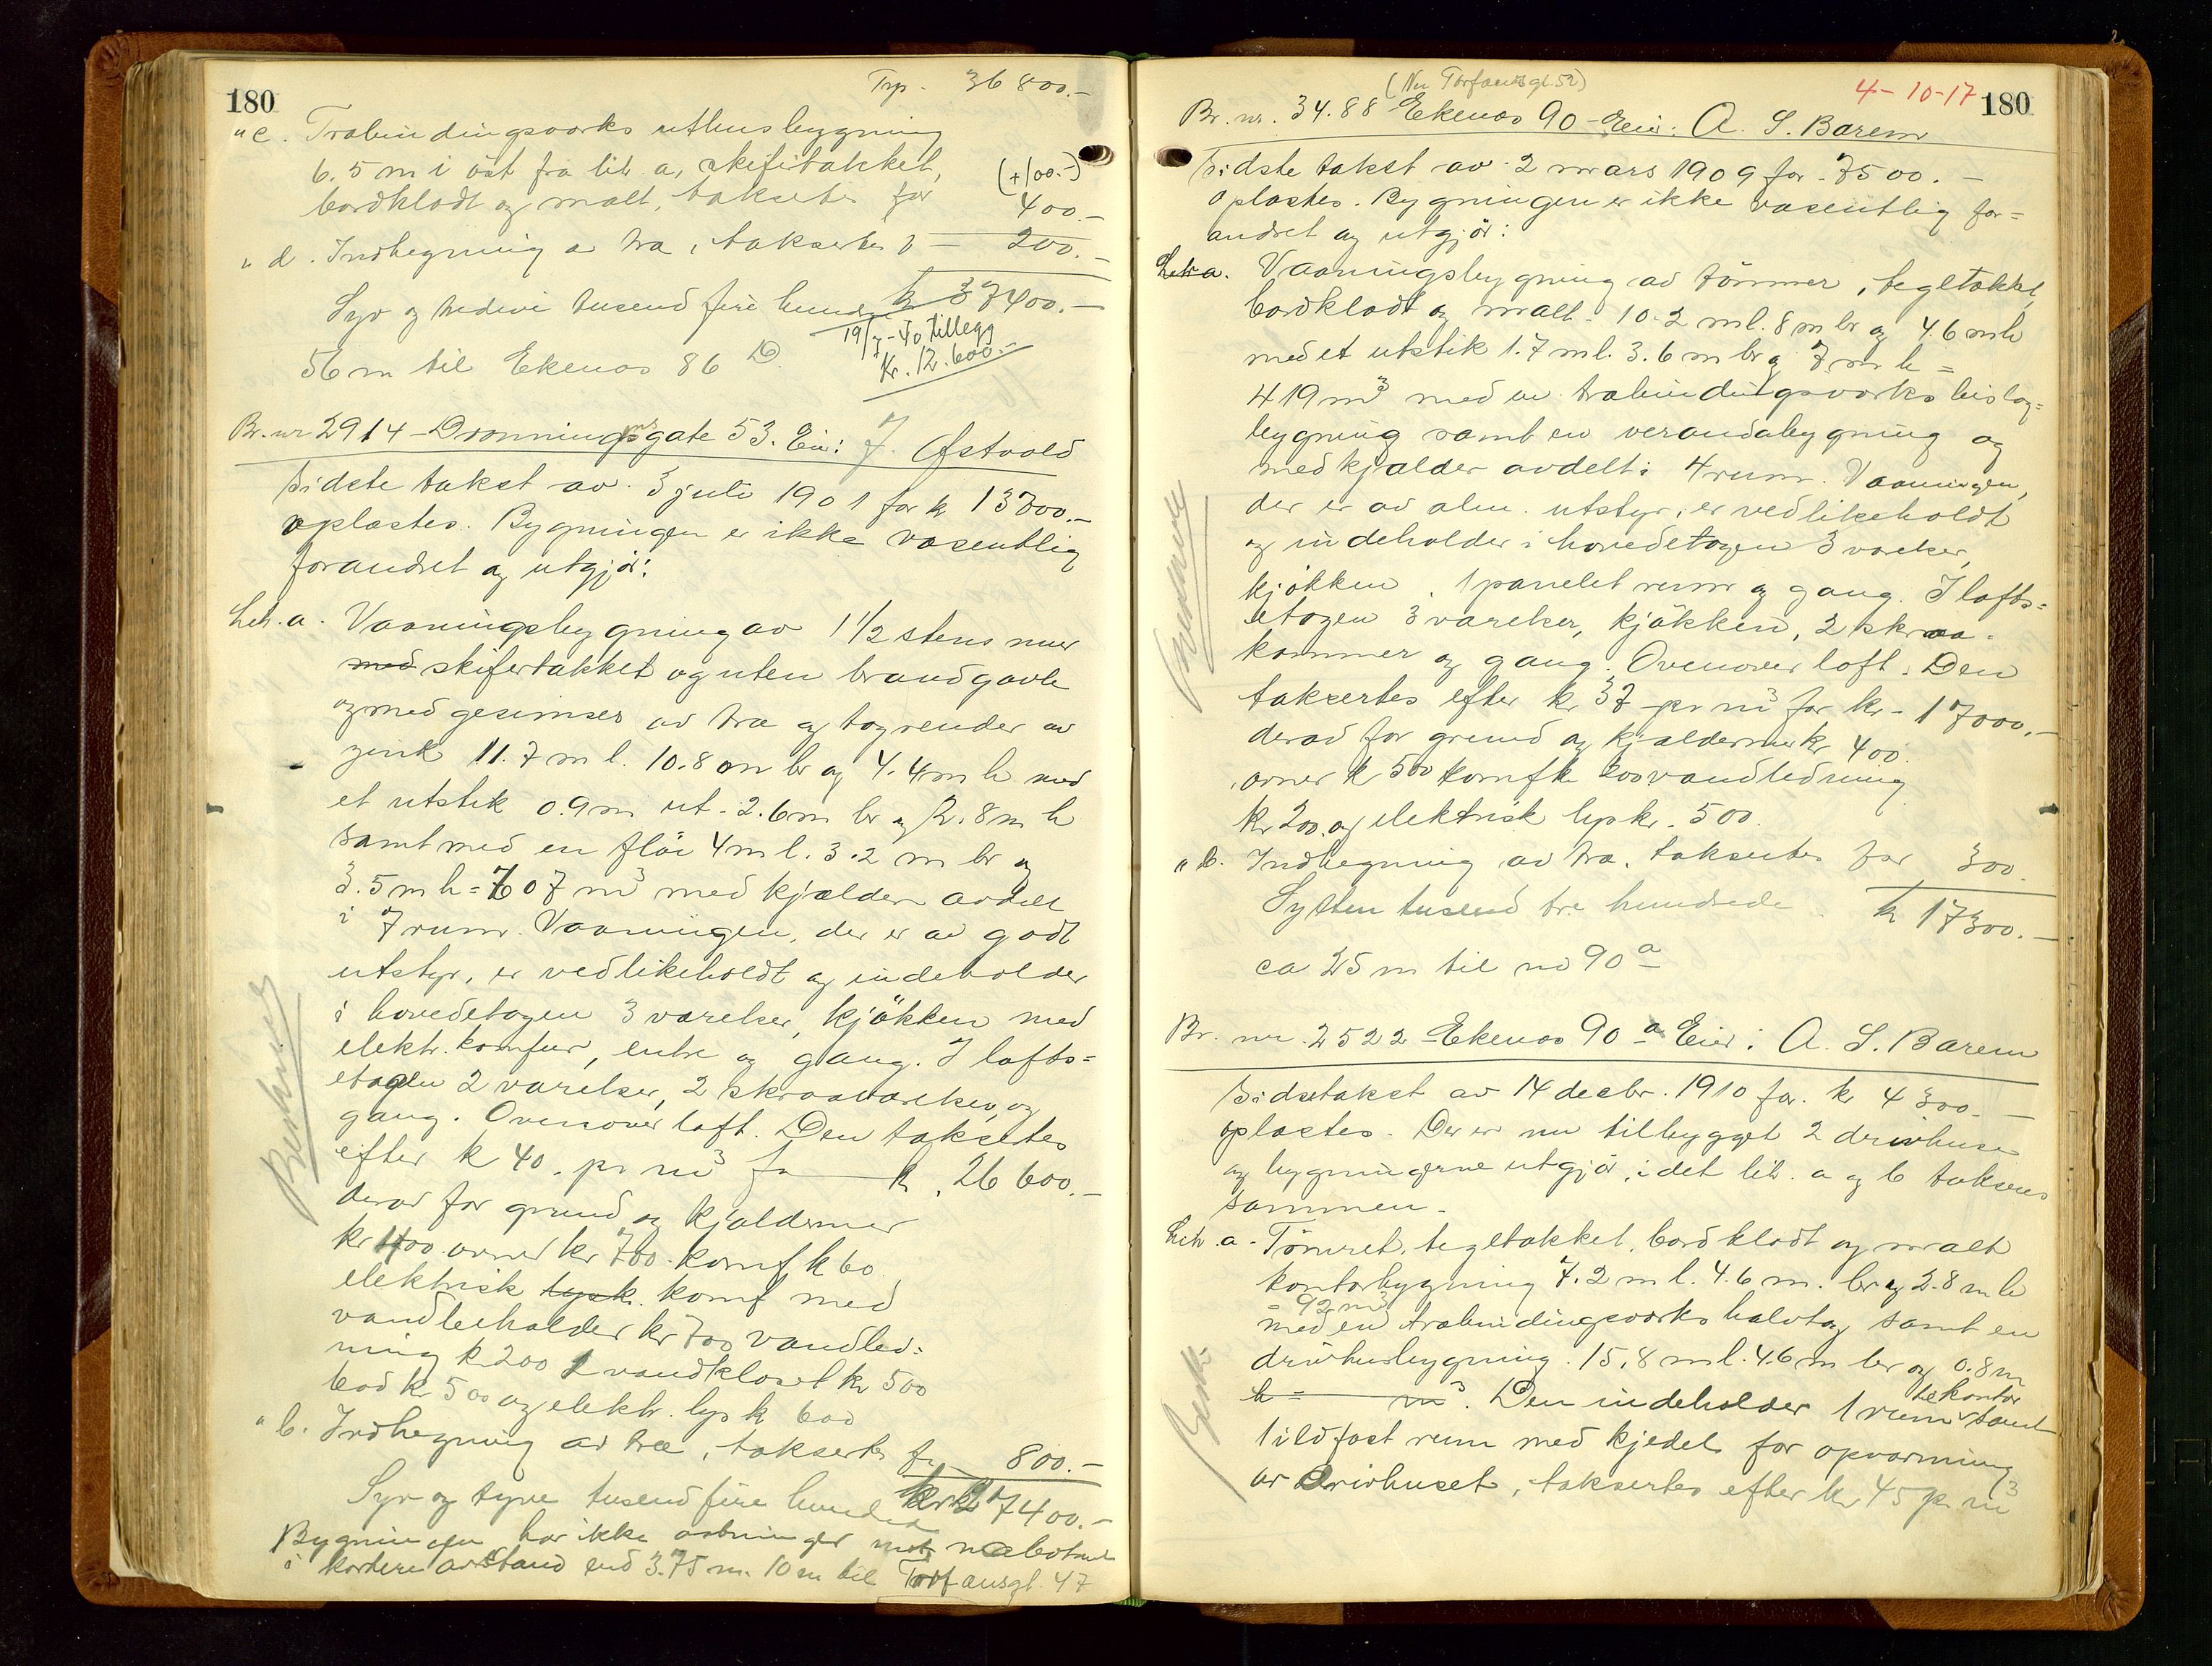 180
Trp. 36 800.-
" c. Træbindingsværks uthusbygning
6.5 m i öst fra lit. a, skifertækket,
bordklædt og malt, takseres for (+100.-) 400.-
" d. Indhegning av træ, takseres f — 200.-
Syv og tredive tusend fire hundrede k 37400.-
19/7-40 tillegg
Kr. 12.600.-
56 m til Ekenæs 86 D.
Br. nr 2914 - Dronningensgate 53. Eier: J. Østvold
Sidste takst av 3 juli 1901 for k 13700.-
oplæstes. Bygningen er ikke væsentlig
forandret og utgjør:
Litr. a. Vaaningsbygning av 1 1/2 stens mur
med skifertækket og uten brandgavle
og med gesimser av træ og tagrender av
zink 11.7 m l. 10.8 m br og 4.4 m h med
et utstik 0.9 m ut. 2.6 m br og 2.8 m h
samt med en flöi 4 m l. 3.2 m br og
3.5 m h = 607 m³ med kjælder avdelt
i 7 rum. Vaaningen, der er av godt
utstyr, er vedlikeholdt og indeholder
i hovedetagen 3 værelser, kjökken med
elektr. komfur, entre og gang. I lofts=
etagen 2 værelser, 2 skraaværelser, og
gang. Ovenover loft. Den takseres
efter k 40. pr m³ for k. 26 600.-
derav for grund og kjældermur
kr 1400 ovner kr 700. komf k 60
elektrisk lysk. komf med
vandbeholder kr 700 vandled=
ning k 200 1 vandkloset kr 500
bad k 500 og elektr. lys k 600
" b. Indhegning av træ, takseres for 800.-
Syv og tyve tusend fire hundrede kr 27400.-
Bygningen har ikke aabninger mot nabotomt
i kortere avstand end 3.75 m. 10 m til Torfæusgt. 47
Beskrives
(Nu Torfæusgt. 52)
4-10-17 180
Br. nr. 34.88 Ekenæs 90 - Eier: A. S. Barem
Sidste takst av 2 mars 1909 for 7500.-
oplæstes. Bygningen er ikke væsentlig for=
andret og utgjör:
Litr a. Vaaningsbygning av tömmer, tegltækket,
bordklædt og malt. 10.2 m l. 8 m br og 4.6 m h
med et utstik 1.7 m l. 3.6 m br og 7 m h =
419 m³ med en træbindingsværks bislag=
bygning samt en verandabygning og
med kjælder avdelt i 4 rum. Vaaningen,
der er av alm. utstyr, er vedlikeholdt
og indeholder i hovedetagen 3 værelser,
kjökken, 1 panelet rum og gang. I lofts=
etagen 3 værelser, kjökken, 2 skraa-
kammer og gang. Ovenover loft. Den
takseres efter kr 37 pr m³ for kr - 17000.-
derav for grund og kjældermur kr 400.
ovner k 500 komf k 200 vandledning
kr 200. og elektrisk lys kr. 500.
" b. Indhegning av træ, takseres for 300.
Sytten tusend tre hundrede k 17300.-
ca 25 m til no 90 a
Br. nr. 2522 Ekenæs 90 a Eier: A. S. Barem
Sidste takst av 14 decbr. 1910 for kr 4300.-
oplæstes. Der er nu tilbygget 2 drivhuse
og bygningerne utgjör, idet lit. a og b takseres
sammen.
Litr. a. Tömret, tegltækket, bordklædt og malt
kontorbygning 7.2 m l. 4.6 m. br og 2.8 m h
= 92 m³
med en træbindingsværks halvtag samt en
drivhusbygning. 15,8 m l. 4.6 m br og 0.8 m
h = m³. Den indeholder 1 rum til kontor samt
1 ildfast rum med kjedel for opvarming
av drivhuset, takseres efter kr 45 pr m³
Besk.